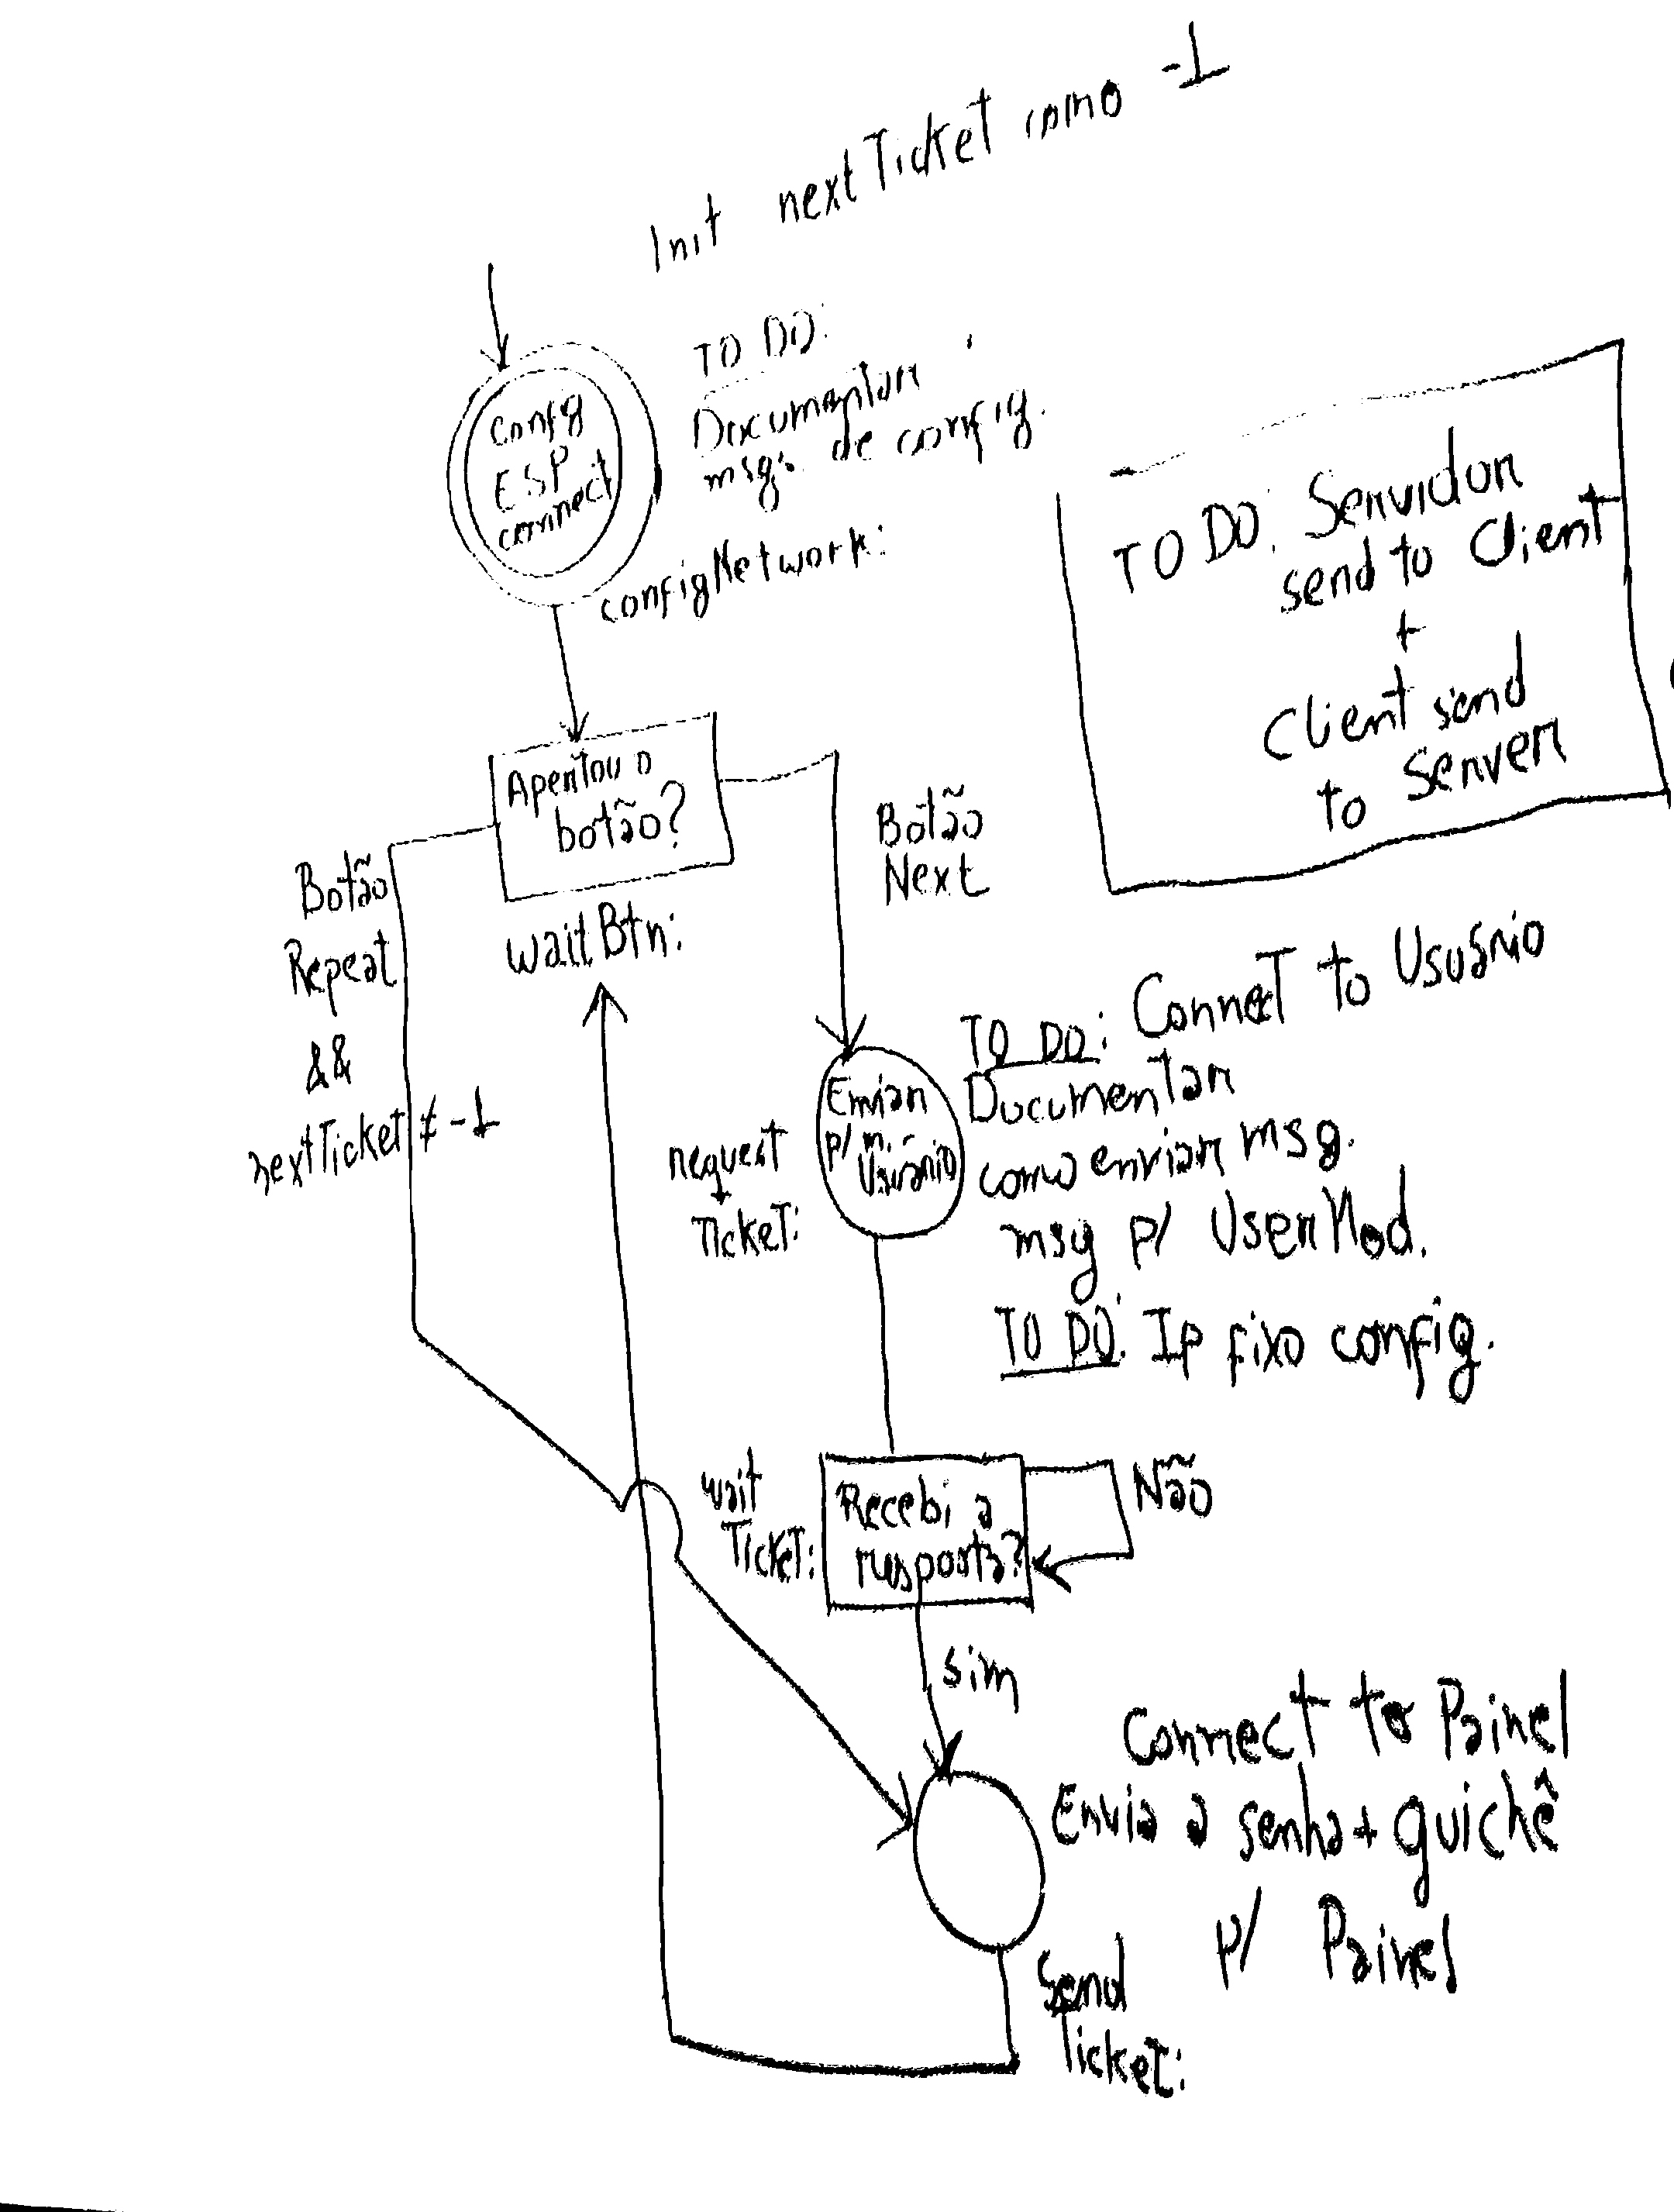 Init nextTicket como -1
TO DO:
Documentar
msgs de config.
Config
ESP
connect
configNetwork:
TO DO: Servidor
send to Client
+
Client send
to Server
Apertou o
botão?
waitBtn:
Botão
Next
Botão
Repeat
&&
nextTicket ≠ -1
TO DO: Connect to Usuário
Documentar
como enviar msg.
msg p/ UserMod.
TO DO: Ip fixo config.
Enviar
p/ m.
Usuário
request
Ticket:
wait
Ticket:
Recebi a
resposta?
Não
sim
Connect to Painel
Envia a senha + guichê
p/ Painel
Send
Ticket: